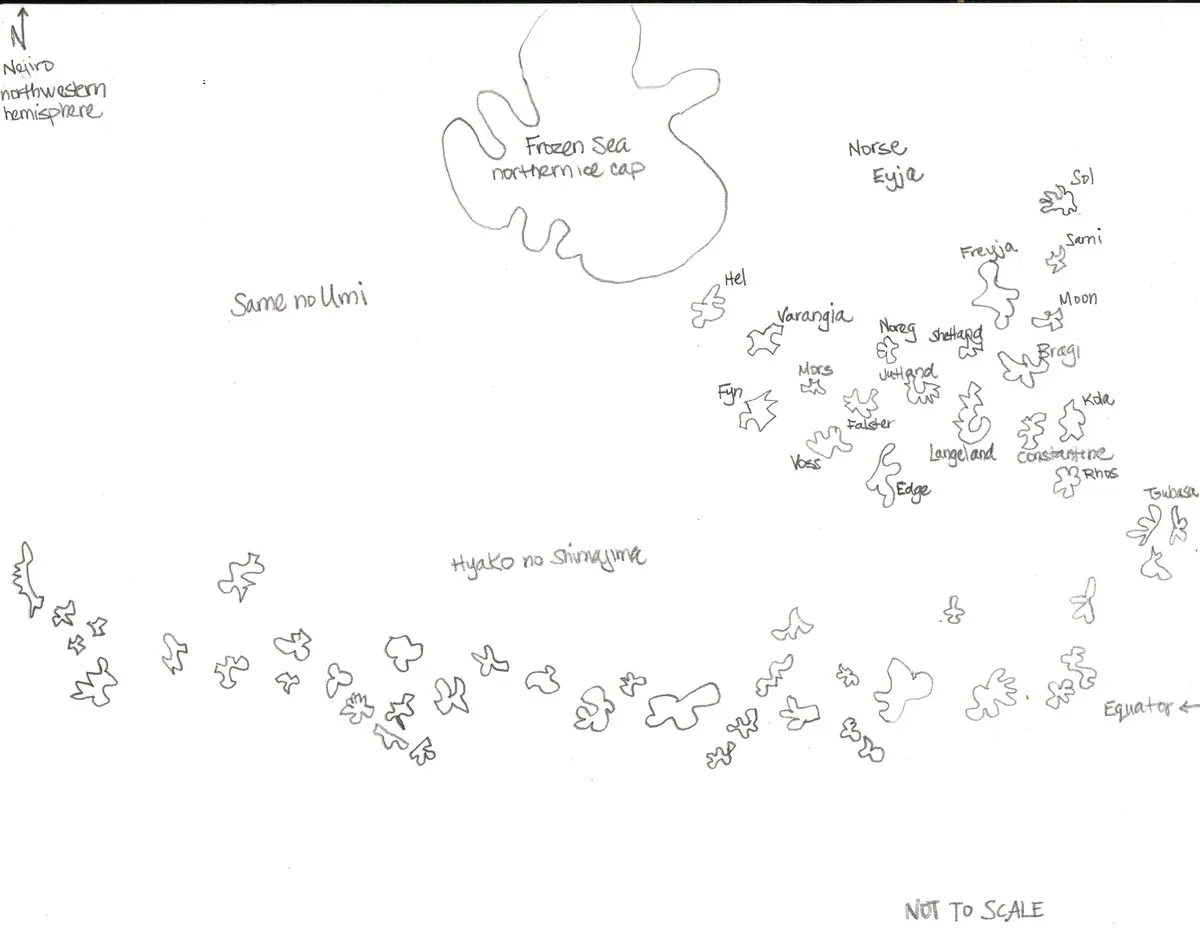 N
Nejiro
northwestern
hemisphere
Frozen Sea
northern ice cap
Norse
Eyja
Sol
Sami
Freyja
Hel
Moon
Same no Umi
Varangia
Noreg
Shetland
Bragi
Mors
Jutland
Fyn
Kola
Falster
Voss
Langeland
Constantine
Rhos
Edge
Tsubasa
Hyako no Shimajima
Equator ←
NOT TO SCALE